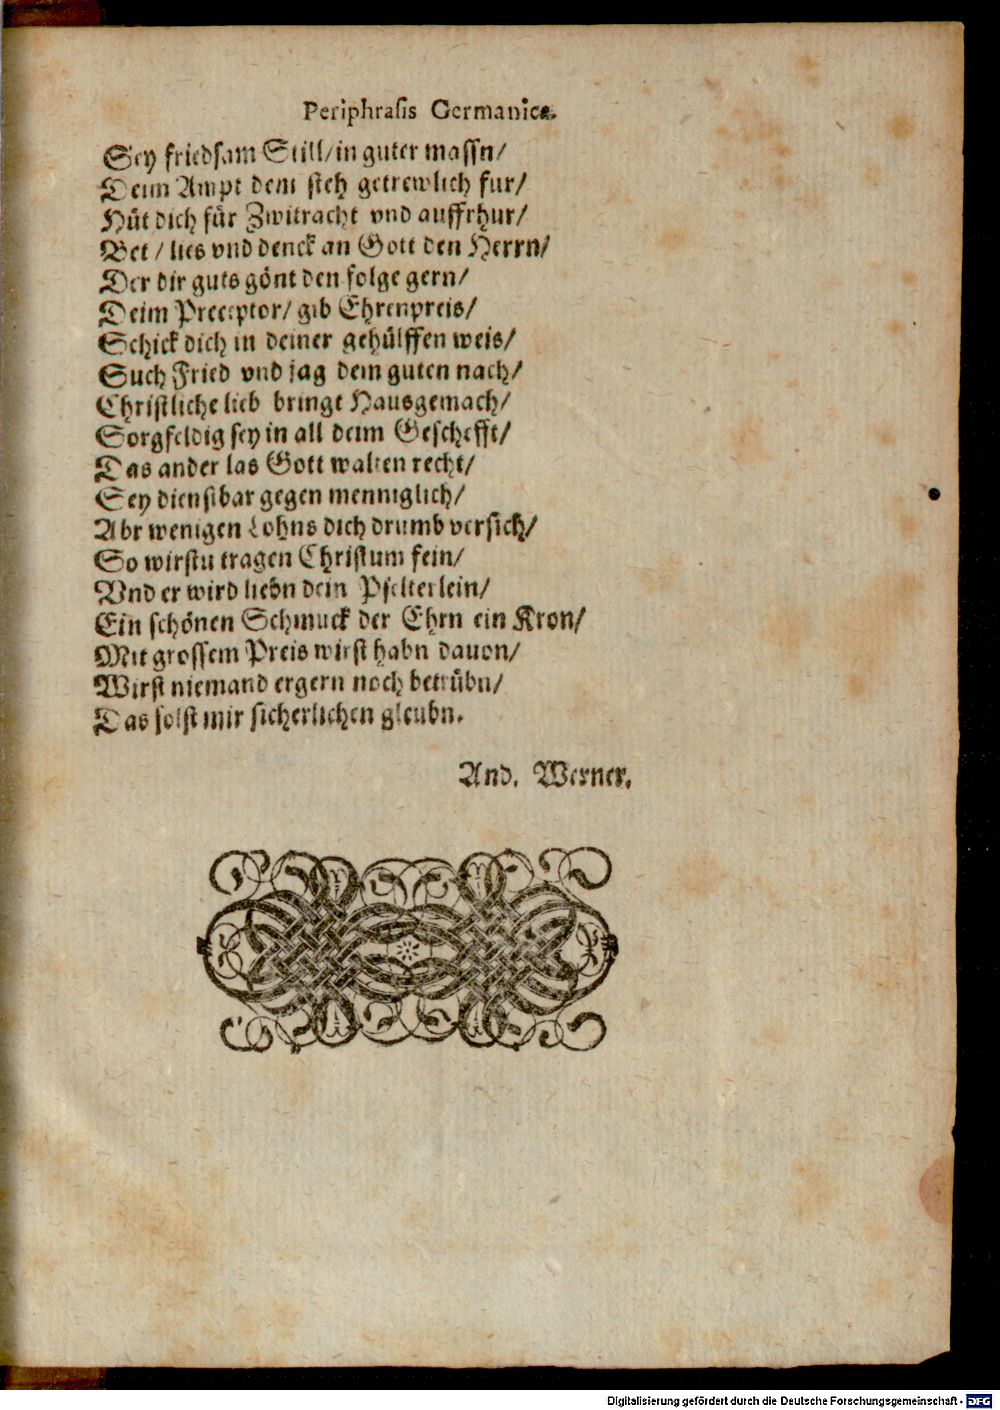 Periphrasis Germanica.
Sey friedsam Still/ in guter massn/
Deim Ampt dem steh getrewlich fur/
Hüt dich für Zwitracht vnd auffrhur/
Bet / lies vnd denck an Gott den Herrn/
Der dir guts gönt den folge gern/
Deim Preceptor/ gib Ehrenpreis/
Schick dich in deiner gehülffen weis/
Such Fried vnd jag dem guten nach/
Christliche lieb bringt Hausgemach/
Sorgfeldig sey in all deim Geschefft/
Das ander las Gott walten recht/
Sey dienstbar gegen menniglich/
Abr wenigen Lohns dich drumb versich/
So wirstu tragen Christum fein/
Vnd er wird liebn dein Pselterlein/
Ein schönen Schmuck der Ehrn ein Kron/
Mit grossem Preis wirst habn dauon/
Wirst niemand ergern noch betrübn/
Das solst mir sicherlichen gleubn.
And. Werner.
Digitalisierung gefördert durch die Deutsche Forschungsgemeinschaft - DFG